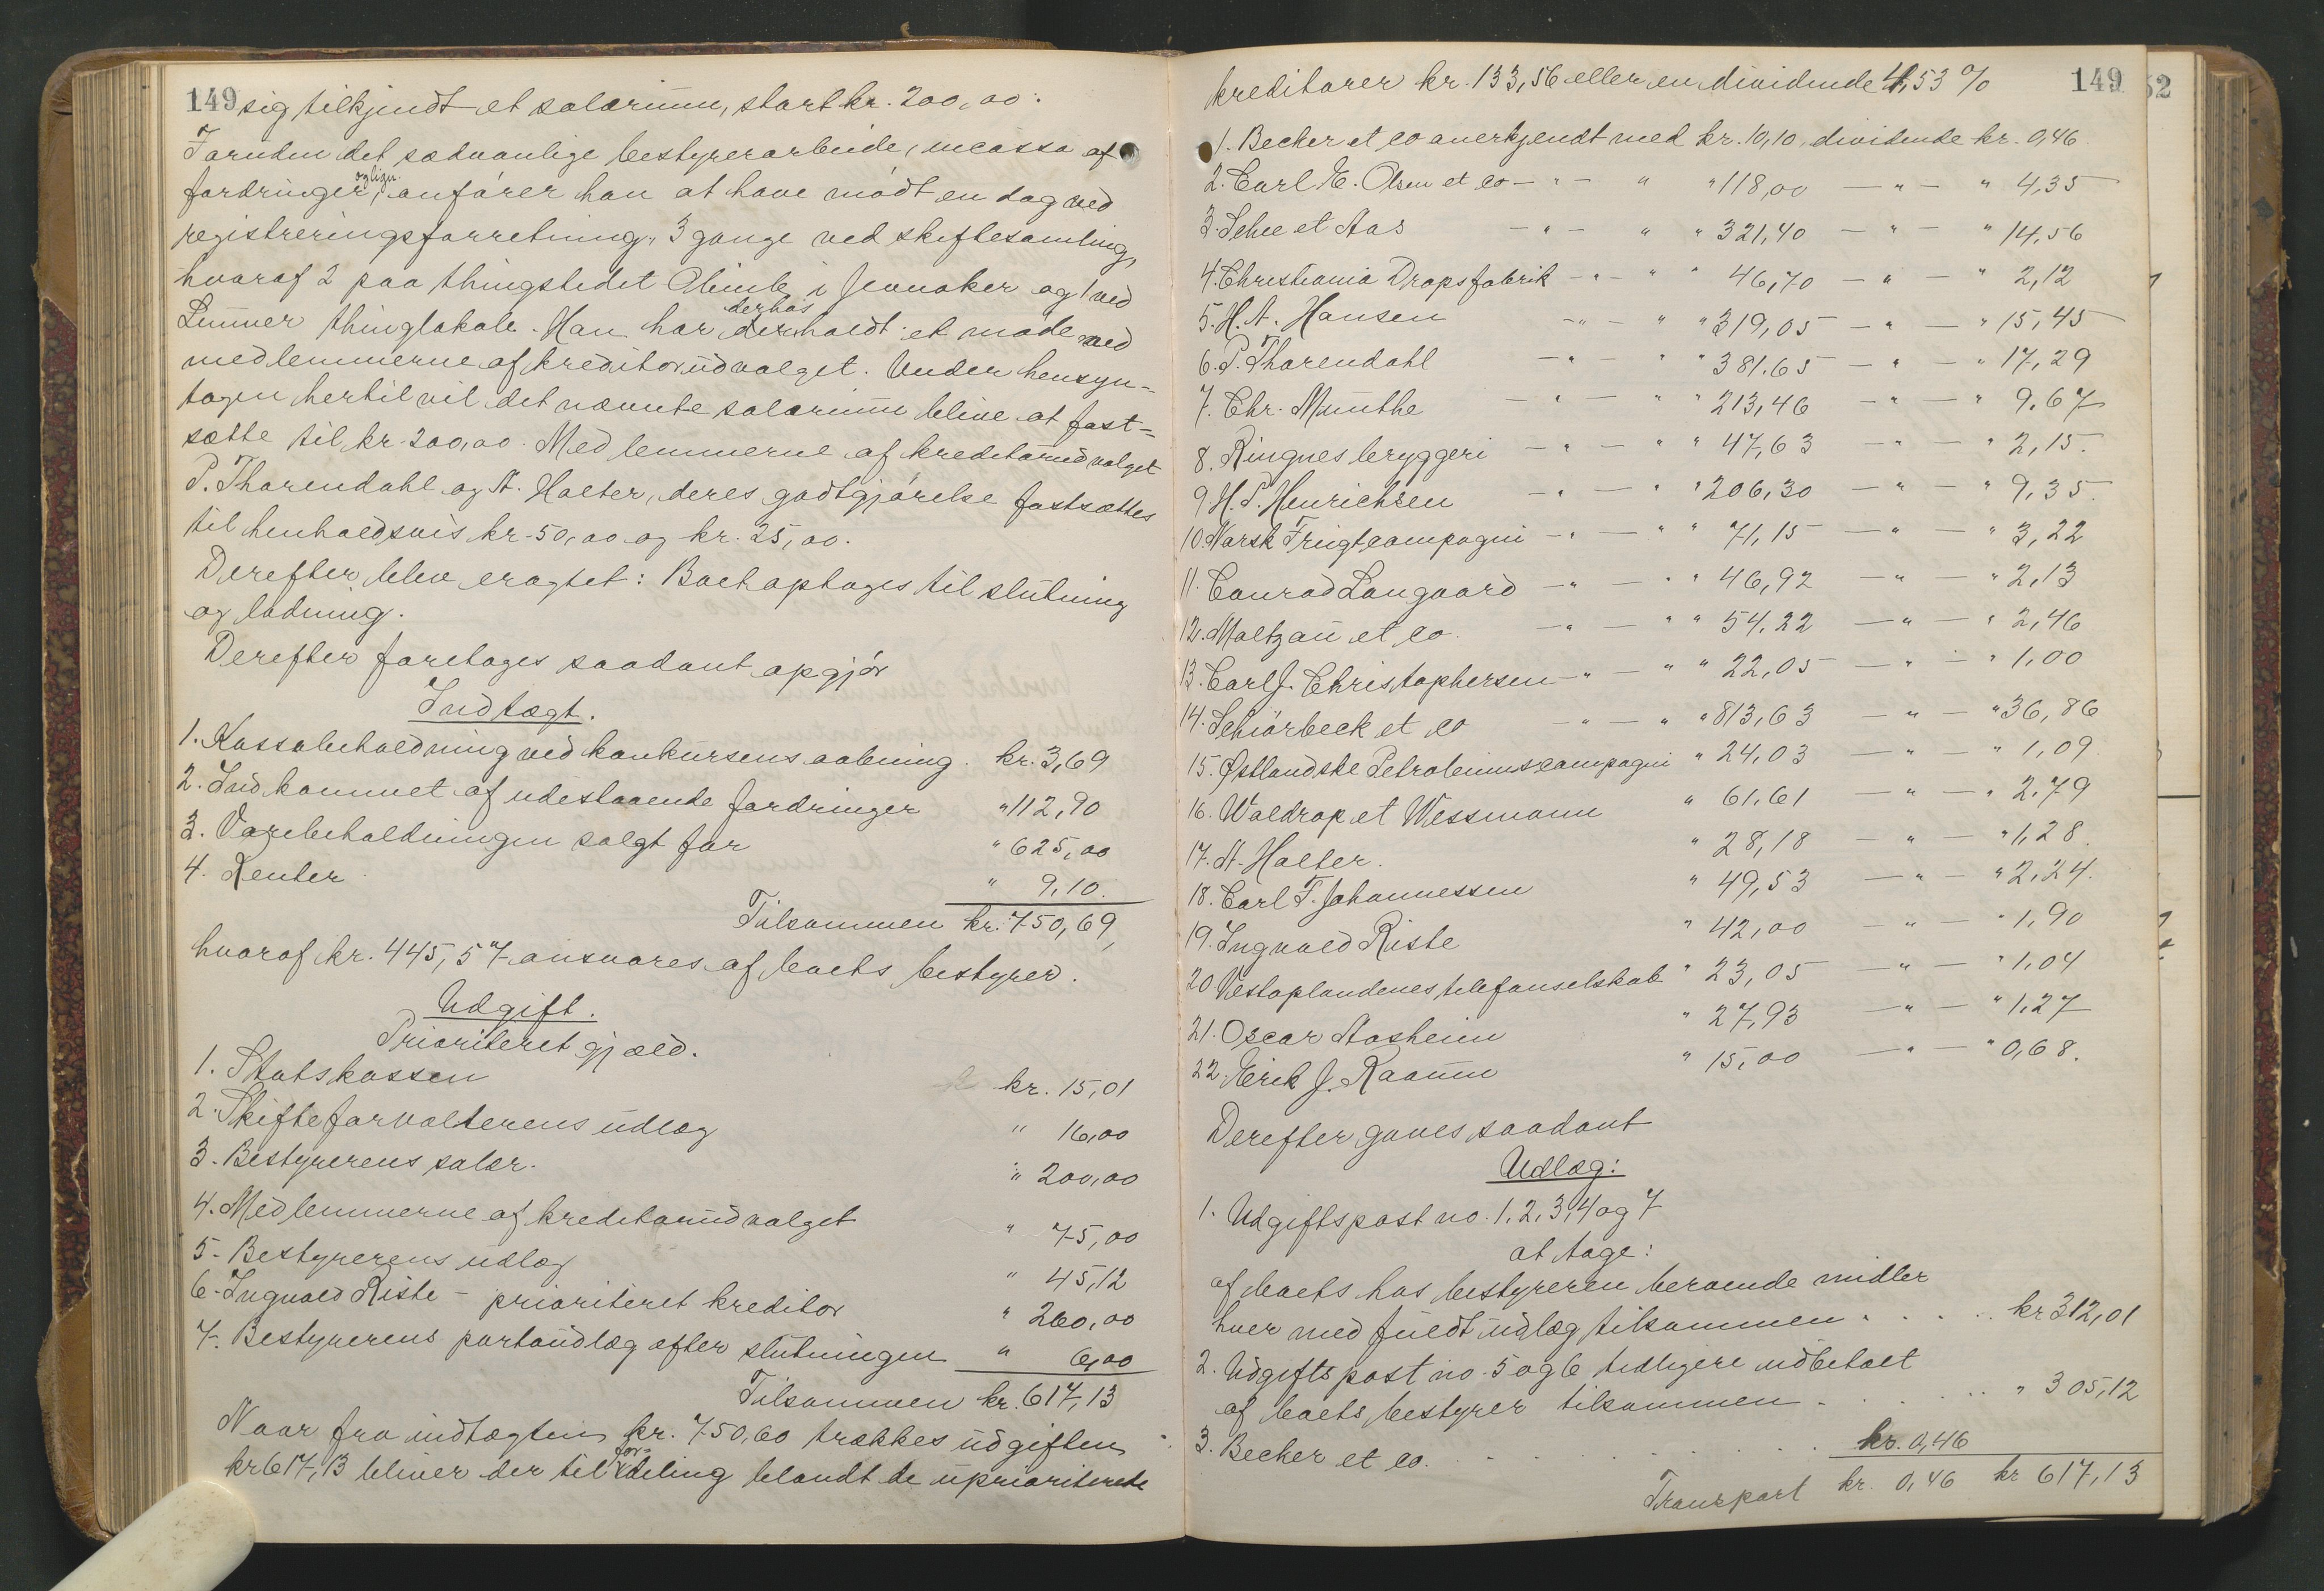 149 sig tilkjendt et salærium, stort kr. 200,00.
Foruden det sædvanlige bestyrerarbeide, incasso af
fordringer, oglign. anfører han at have mødt en dag ved
registreringsforretning, 3 gange ved skiftesamling,
hvoraf 2 paa thingstedet Alm i Jevnaker og 1 ved
Lunner thinglokale. Han har derhos holdt et møde med
medlemmerne af kreditorudvalget. Under hensyn=
tagen hertil vil det nævnte salærium blive at fast=
sætte til kr. 200,00. Medlemmerne af kreditorudvalget
P. Thorendahl og A. Holter, deres godtgjørelse fastsættes
til henholdsvis kr. 50,00 og kr. 25,00.
Derefter blev eragtet: Boet optages til slutning
og lodning.
Derefter foretages saadant opgjør
Indtægt.
1. Kassabeholdning ved konkursens aabning. kr. 3,69
2. Indkommet af udestaaende fordringer " 112,90
3. Varebeholdningen solgt for " 625,00
4. Renter " 9,10.
Tilsammen kr. 750,69,
hvoraf kr. 445,57 ansvares af boets bestyrer.
Udgift.
Prioriteret gjæld.
1. Statskassen kr. 15,01
2. Skifteforvalterens udlæg " 16,00
3. Bestyrerens salær. " 200,00
4. Medlemmerne af kreditorudvalget " 75,00
5. Bestyrerens udlæg " 45,12
6. Ingvald Riste - prioriteret kreditor " 260,00
7. Bestyrerens portoudlæg efter slutningen " 6,00
Tilsammen kr. 617,13
Naar fra indtægten kr. 750,60 trækkes udgiften
kr 617,13 bliver der til fordeling blandt de uprioriterede
kreditorer kr. 133,56 eller en dividende 4,53 % 149
52
1. Becher et co anerkjendt med kr. 10,10, dividende kr. 0,46
2. Carl E. Olsen et co - " - " " 118,00 - " - " 4,35
3. Schee et Aas - " - " " 321,40 - " - " 14,56
4. Christiania Dropsfabrik - " - " " 46,70 - " - " 2,12
5. H. A. Hansen - " - " " 319,05 - " - " 15,45
6. P. Thorendahl - " - " " 381.65 - " - " 17,29
7. Chr. Munthe - " - " " 213,46 - " - " 9.67
8. Ringnes bryggeri - " - " " 47,63 - " - " 2,15.
9. H. P. Henrichsen - " - " " 206,30 - " - " 9,35.
10. Norsk Frugtcompagni - " - " " 71,15 - " - " 3,22
11. Conrad Langaard - " - " " 46,92 - " - " 2,13
12. Maltzau et co. - " - " " 54,22 - " - " 2,46
13. Carl J. Christophersen - " - " " 22,05 - " - " 1,00
14. Schiørbeck et co - " - " " 813,63 - " - " 36,86
15. Østlandske Petroleumscompagni " 24,03 - " - " 1,09
16. Woldrop et Wessmann " 61,61 - " - " 2.79
17. A. Holter. " 28,18 - " - " 1,28.
18. Carl F. Johannessen " 49,53 - " - " 2,24.
19. Ingvald Riste " 42,00 - " - " 1,90
20 Vestoplandenes telefonselskab " 23,05 - " - " 1,04
21. Oscar Aasheim " 27,93 - " - " 1,27
22. Erik J. Raaum " 15,00 - " - " 0,68.
Derefter gaves saadant
Udlæg:
1. Udgiftspost no. 1, 2, 3, 4 og 7
at tage:
af boets hos bestyreren beroende midler
hver med fuldt udlæg tilsammen . . . . . kr 312,01
2. Udgiftspost no. 5 og 6 tidligere udbetalt
af boets bestyrer tilsammen . . . . " 305,12
3. Becher et co. . . . . . . kr. 0,46
Transport kr. 0,46 kr 617,13